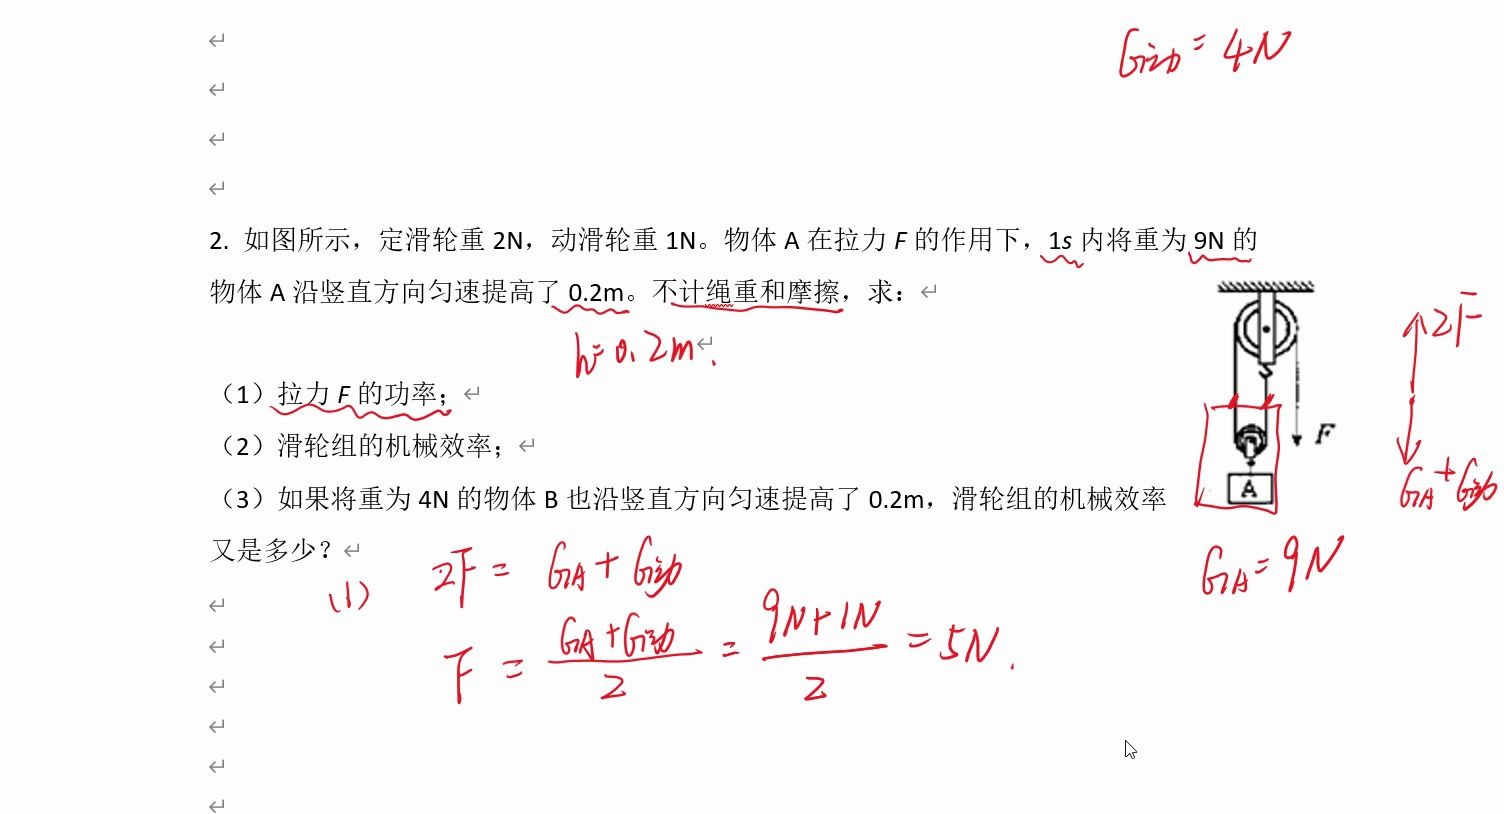 G动 = 4N
2. 如图所示，定滑轮重 2N，动滑轮重 1N。物体 A 在拉力 F 的作用下，1s 内将重为 9N 的
物体 A 沿竖直方向匀速提高了 0.2m。不计绳重和摩擦，求：
h=0.2m.
（1）拉力 F 的功率；
（2）滑轮组的机械效率；
（3）如果将重为 4N 的物体 B 也沿竖直方向匀速提高了 0.2m，滑轮组的机械效率
又是多少？
F
A
2F
GA+G动
GA=9N
(1) 2F = GA + G动
F = (GA+G动)/2 = (9N+1N)/2 = 5N.